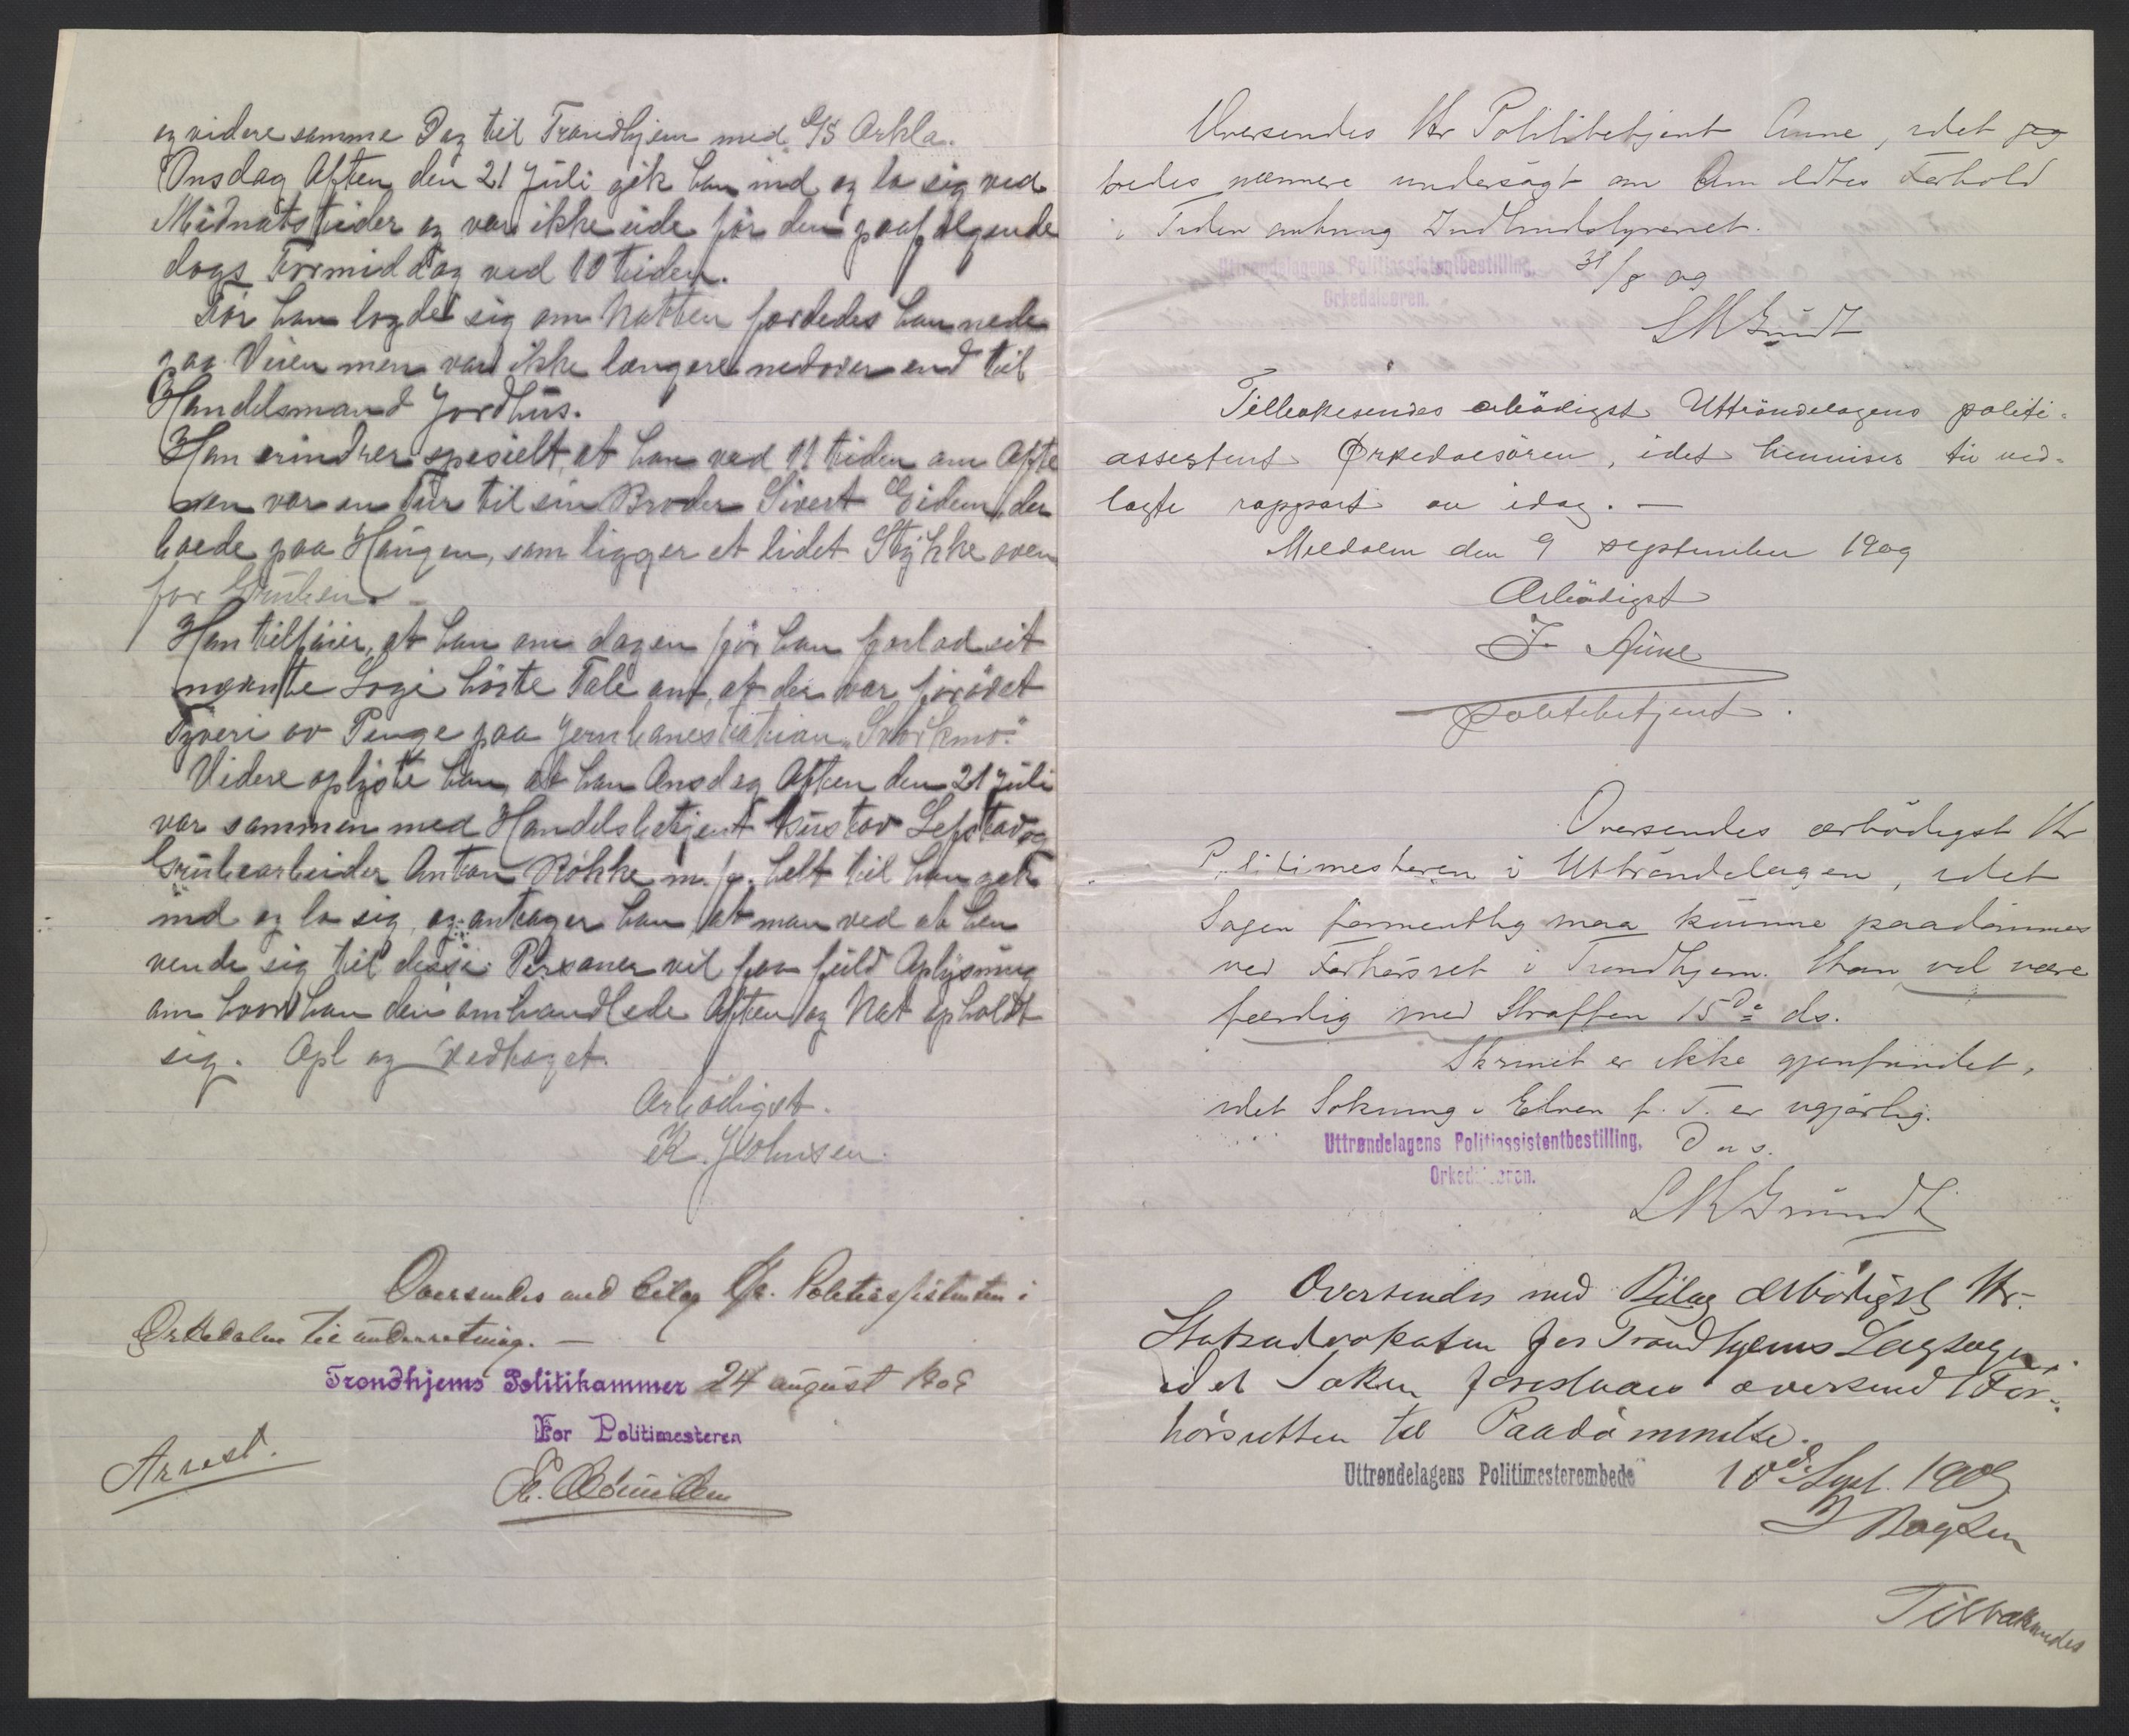 og videre samme Dag til Trondhjem med D/S Orkla.
Onsdag Aften den 21 Juli gik han ind og la sig ved
Midnatstider og var ikke ude før den paafølgende
dags Formiddag ved 10 tiden.
Før han lagde sig om Natten færdedes han nede
paa Veien men var ikke længere nedover end til
Handelsmand Jordhus.
Han erindrer spesielt, at han ved 11 tiden om Afte
nen var en Tur til sin Broder Sivert Eidem, der
boede paa Haugen, som ligger et lidet Stykke oven
for Gruben. –
Han tilføier, at han om dagen før han forlod sit
nævnte Logi hørte Tale om, at der var forøvet
Tyveri av Penge paa Jernbanestation „Svorkmo“.
Videre oplyste han, at han Onsdag Aften den 21 Juli
var sammen med Handelsbetjent Gustav Lefstad og
Grubearbeider Anton Røkke m. fl. helt til han gik
ind og la sig, og antager han, at man ved at hen
vende sig til disse Personer vil faa fuld Oplysning
om hvor han den omhandlede Aften og Nat opholdt
sig. Opl og Vedtaget.
Ærbødigst.
K. Johnsen.
Oversendes med bilag Hr. Politiassistenten i
Orkedalen til underretning. —
Trondhjems Politikammer 24 august 1909
For Politimesteren
Arrest.
Oversendes Hr Politibetjent Aune, idet jeg
bedes nærmere undersøgt om Anmeldtes Forhold
i Tiden omkring Indbrudstyveriet.
Uttrøndelagens Politiassistentbestilling, 31/8 09
Orkedalsøren.
LMGrundt
Tilbakesendes ærbødigst Uttrøndelagens politi-
assistent Ørkedalsøren, idet henvises til ved-
lagte rapport av idag. —
Meldalen den 9 september 1909
Ærbødigst
J. Aune
politibetjent.
Oversendes ærbødigst Hr
Politimesteren i Uttrøndelagen, idet
Sagen formentlig maa kunne paadømmes
ved Forhørsret i Trondhjem. Han vil være
færdig med Straffen 15de ds.
Skrinet er ikke gjenfundet,
idet Sokning i Elven p. T. er ugjørlig.
Uttrøndelagens Politiassistentbestilling, D u s.
Orkedalsøren.
LMGrundt
Oversendes med Bilag ærbødigst Hr.
Statsadvokaten for Trondhjems Lagsogn
idet Saken foreslaaes oversendt For-
hørsretten til Paadømmelse.
Uttrøndelagens Politimesterembede 10de Sept. 1909
Tilbakesendes